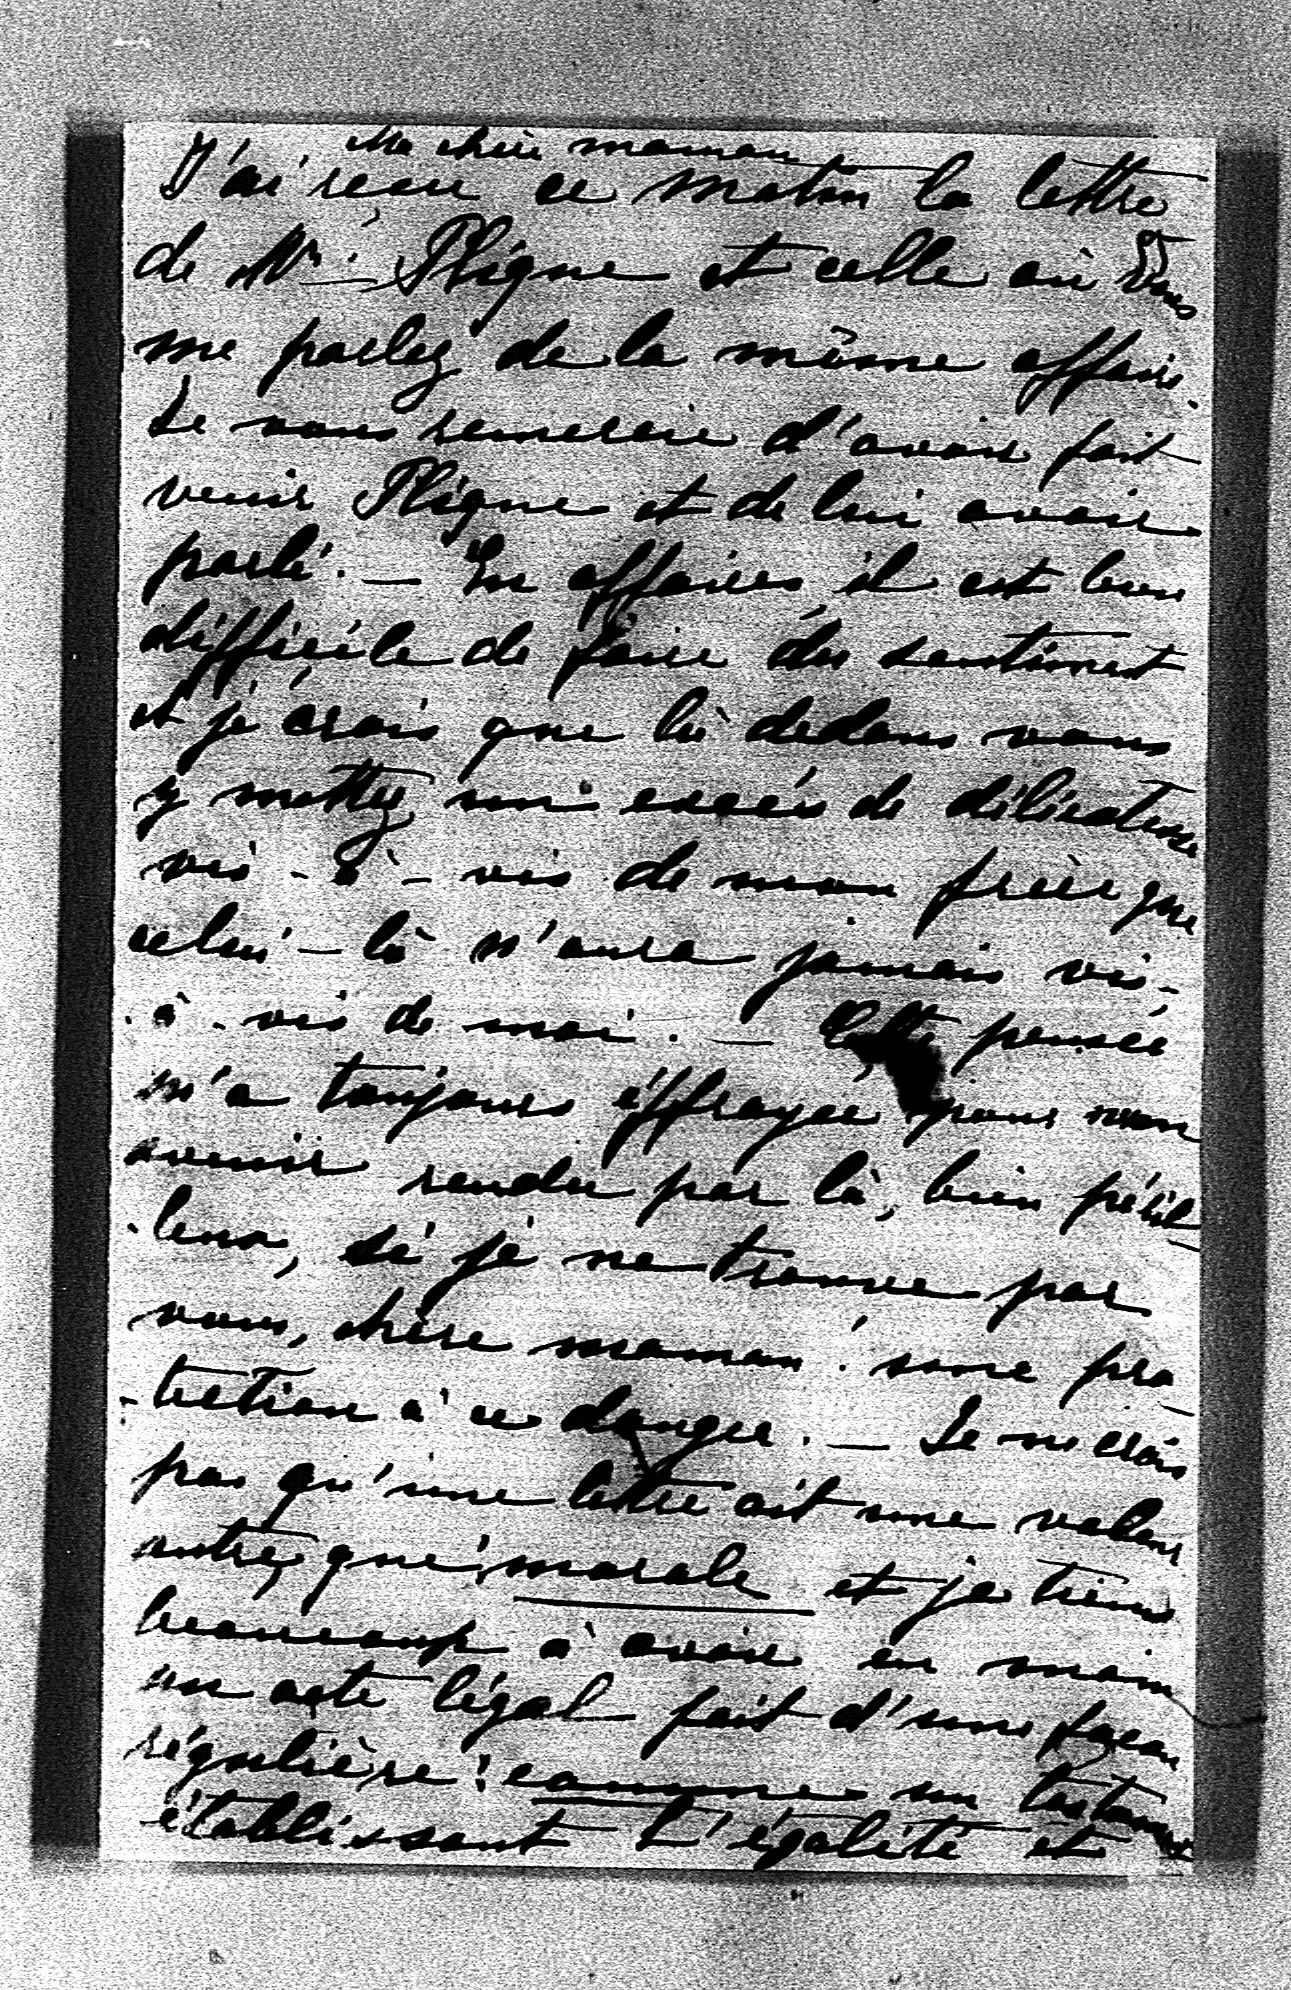 Ma chère maman
J'ai recu ce matin la lettre
de Mr. Pligne et celle où vous
me parlez de la même affaire.
Je vous remercie d'avoir fait
venir Pligne et de lui avoir
parlé. — En affaires il est bien
difficile de faire du sentiment
et je crois que là dedans vous
y mettez un excés de délicatesse
vis-à-vis de mon frère que
celui-là n'aura jamais vis-
-à-vis de moi. — Cette pensée
m'a toujours éffrayée pour mon
avenir rendu par là, bien
, si je ne trouve par
vous, chère maman, une pro
-tection à ce danger. — Je ne crois
pas qu'une lettre ait une valeur
autre, que morale et je tiens
beaucoup à avoir en main
un acte légal fait d'une facon
régulière: comme un testament
établissant l'égalité et